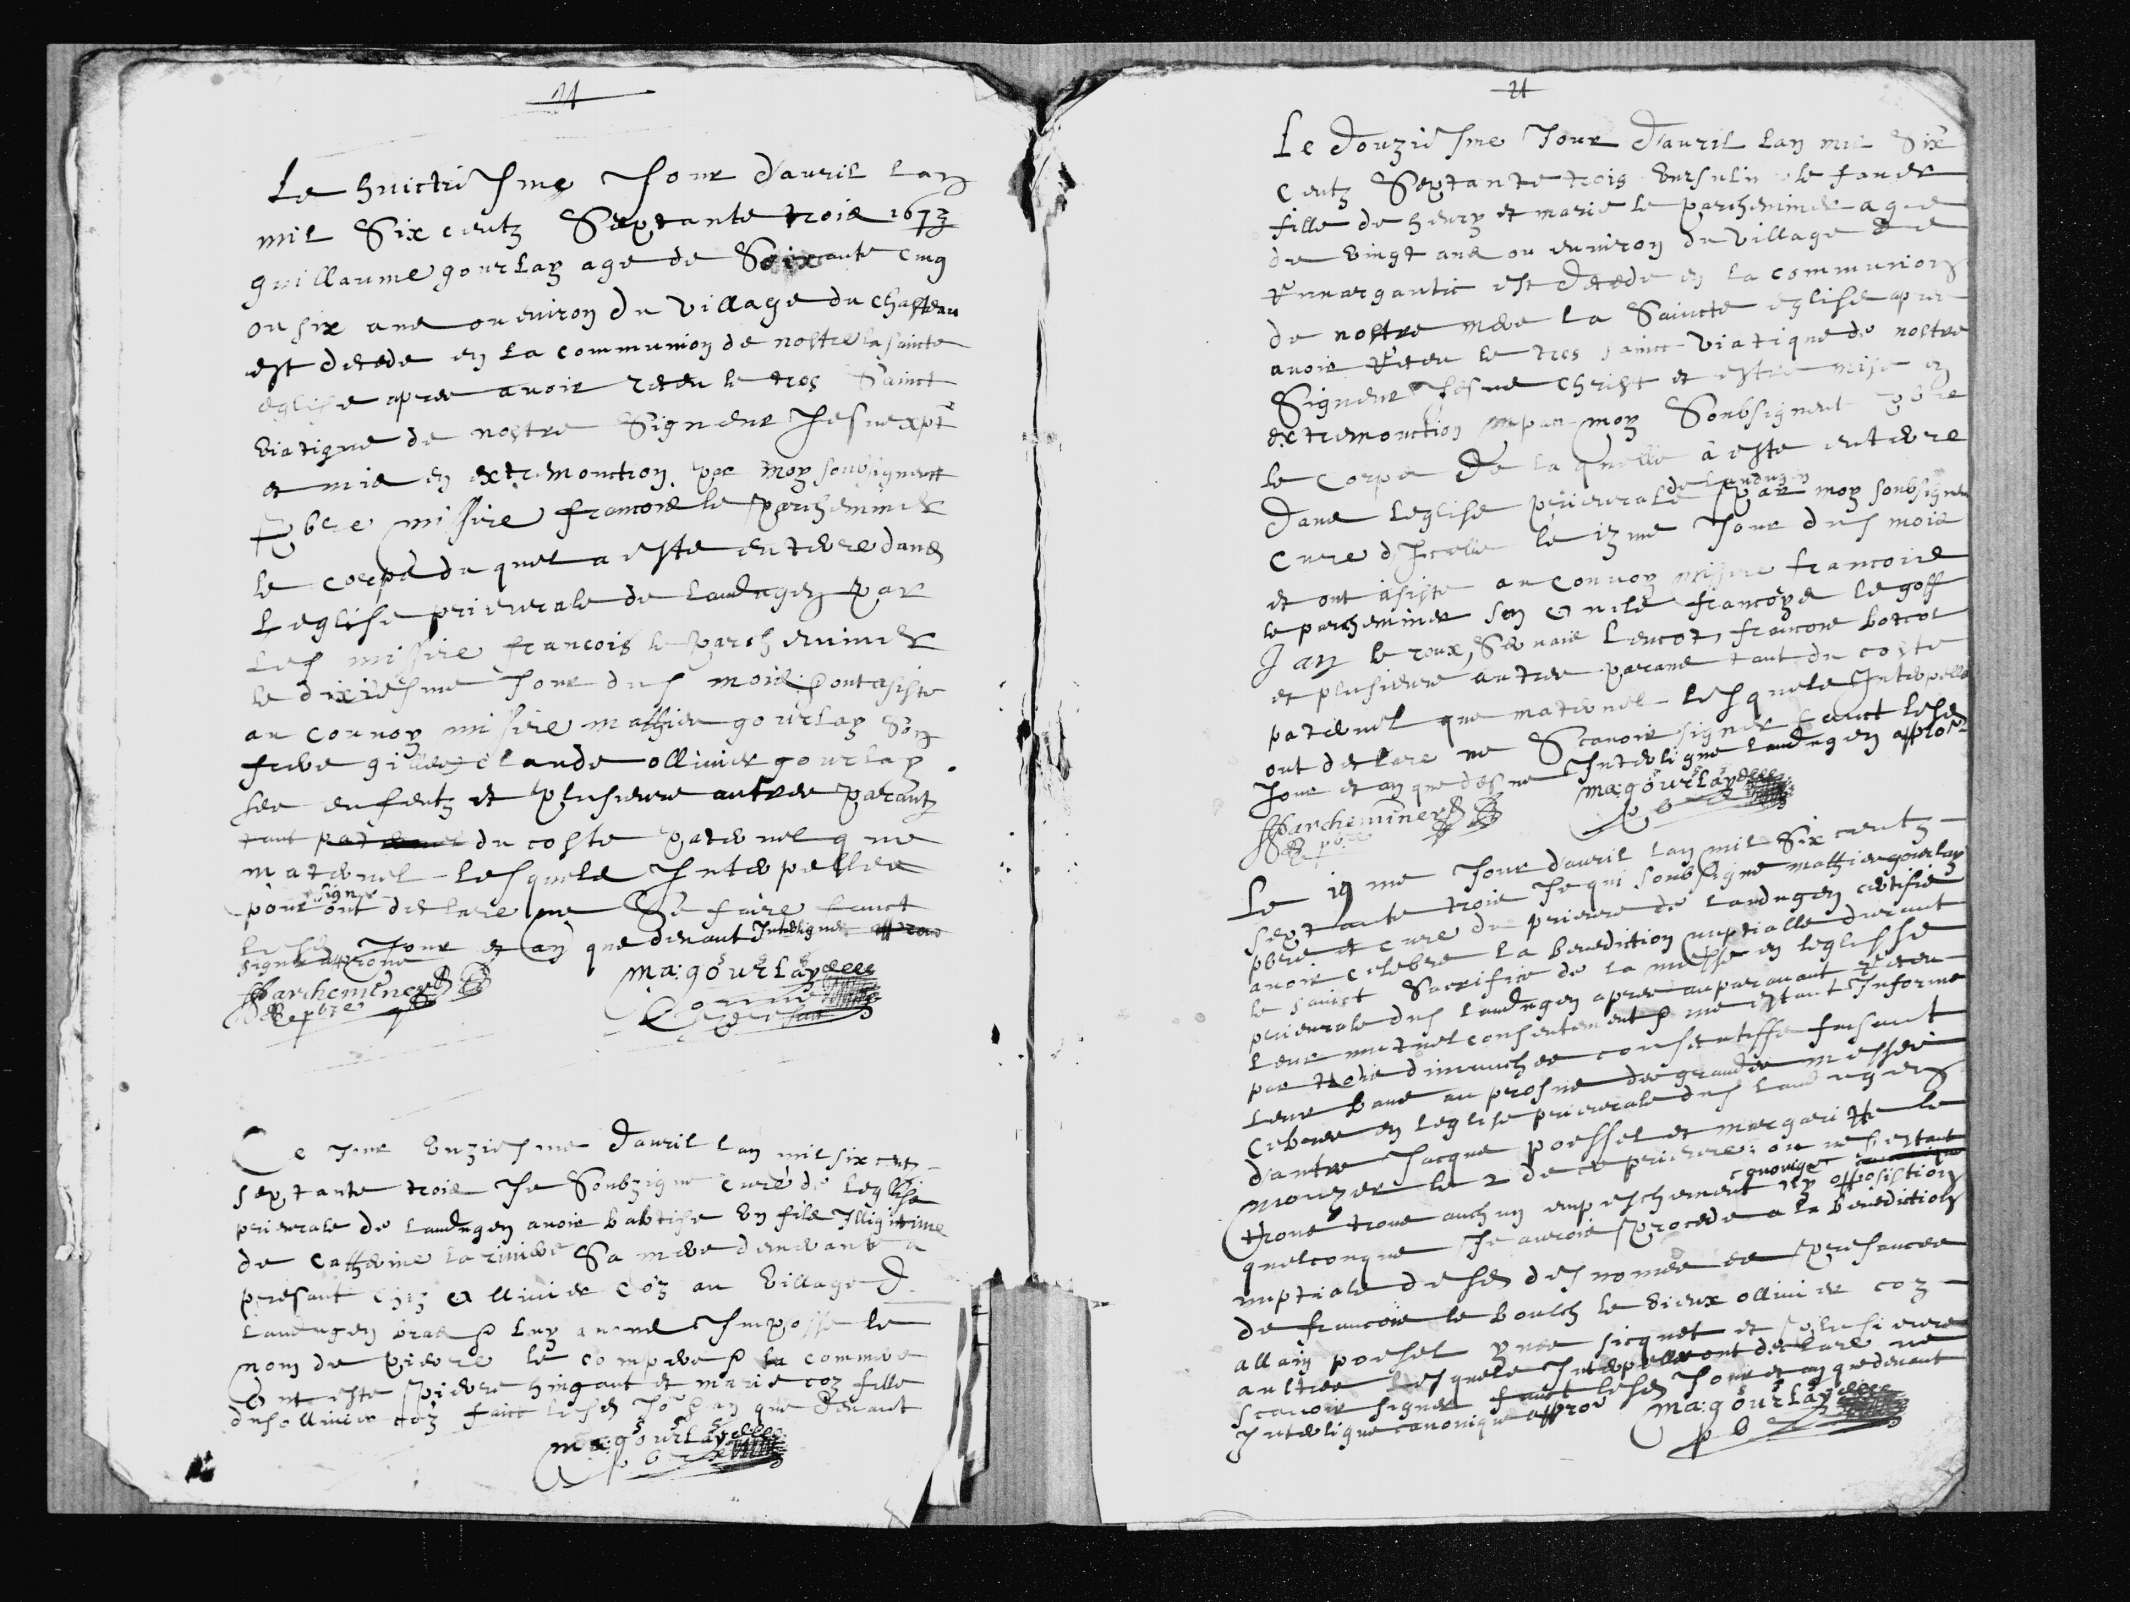 21
Le huictiesme Jour d'auril lan
mil Six centz Septante trois 1673
guillaume gourlay age de Soixante cinq
ou six ans ou enuiron du village du chasteau
est decede en la communion de nostre la saincte
eglise apres auoir receu le tres Sainct
viatique de nostre Signeur Jesus xpt
et mis en extremonction par moy soubsigneant
pbre missire francois le parcheminer
le corps du quel a este enterre dans
Leglise prieurale de Landugen par
led missire francois le parcheminer
le dixiesme Jour dud mois & ont asiste
au conuoy missire mathieu gourlay son
frere gilles claude ollivier gourlay
ses enfentz et plusieurs autres parantz
tant paternel du coste paternel que
maternel lesquels Interpelles
pour signe ont declare ne Se faire fauct
lesd Jour et an que deuant Interligne approuue
signe approuue
ff parcheminer
pbre
ma: gourlay
Ce Jour vnziesme d'auril lan mil six centz
septante trois Je Soubzigne cure de leglise
prieurale de landugen auoir babtise vn fils Illigitime
de Catherine la riuiere Sa mere demeurante a
presant chez ollivier coz au village d
landugen bras & luy auons Imposse le
nom de pierre le compere & la commere
ont este pierre hingant et marie coz fille
dud ollivier coz faict lesd Jo & an que deuant
ma: gourlay
pbre
21
Le Douziesme Jour d'auril lan mil Six
centz Septante trois vursulin le fauer
fille de henry et marie le parcheminer agee
de vingt ans ou enuiron du village de
kmargantic est decede en la communion
de nostre mere la Saincte eglise apres
auoir receu le tres sainct viatique de nostre
Signeur Jesus Christ et estre mise en
extremonction par moy Soubsigneant pbre
le Corps De la quelle a este enterre
dans leglise priuerale de Landugen par moy soubsigneant
cure d'Icelle le 13me Jour dud mois
et ont asiste au conuoy missire francois
le parcheminer son oncle francoys le goff
Jan le roux, Seuaie Lencot, francois botcol
et plusieurs autres parans tant du coste
paternel que maternel lesquels Interpelles
ont declare ne Scauoir signer fauct lesd
Jour et an que desus Interligne landugen approuue
ff parcheminer
pbre
ma: gourlay
pbre
Le 19 me Jour d'auril lan mil Six centz
septante trois Je qui soubsigne mathieu gourlay
pbre et cure du prieure de landugen certifie
auoir celebre la benediction nuptialle durant
le sainct Sacrifice de la messe en leglisse
prieurale dud landugen apres auparauant receu
leur mutuel consentement & me estant Informe
par trois dimanches consecutiffs faisant
leur bans au prosne des grandes messes
celebres en leglise prieurale dud landugen
d'antre Jacques poessel et margaritte le
mouzer le 2 de ce prieure: ou ne s'estant
troue troue auchun empeschement canonique ny opposistion
quelconque Je aurois procede a la benediction
nuptiale desd desnomes es presances
de francois le boulch le vieux ollivier coz
allain poesel yues sicquet et plusieurs
aultres lesquels Interpelles ont declare ne
scauoir signer fauct lesd Jour et an que deuant
Interligne canonique approuue
ma: gourlay
pbre